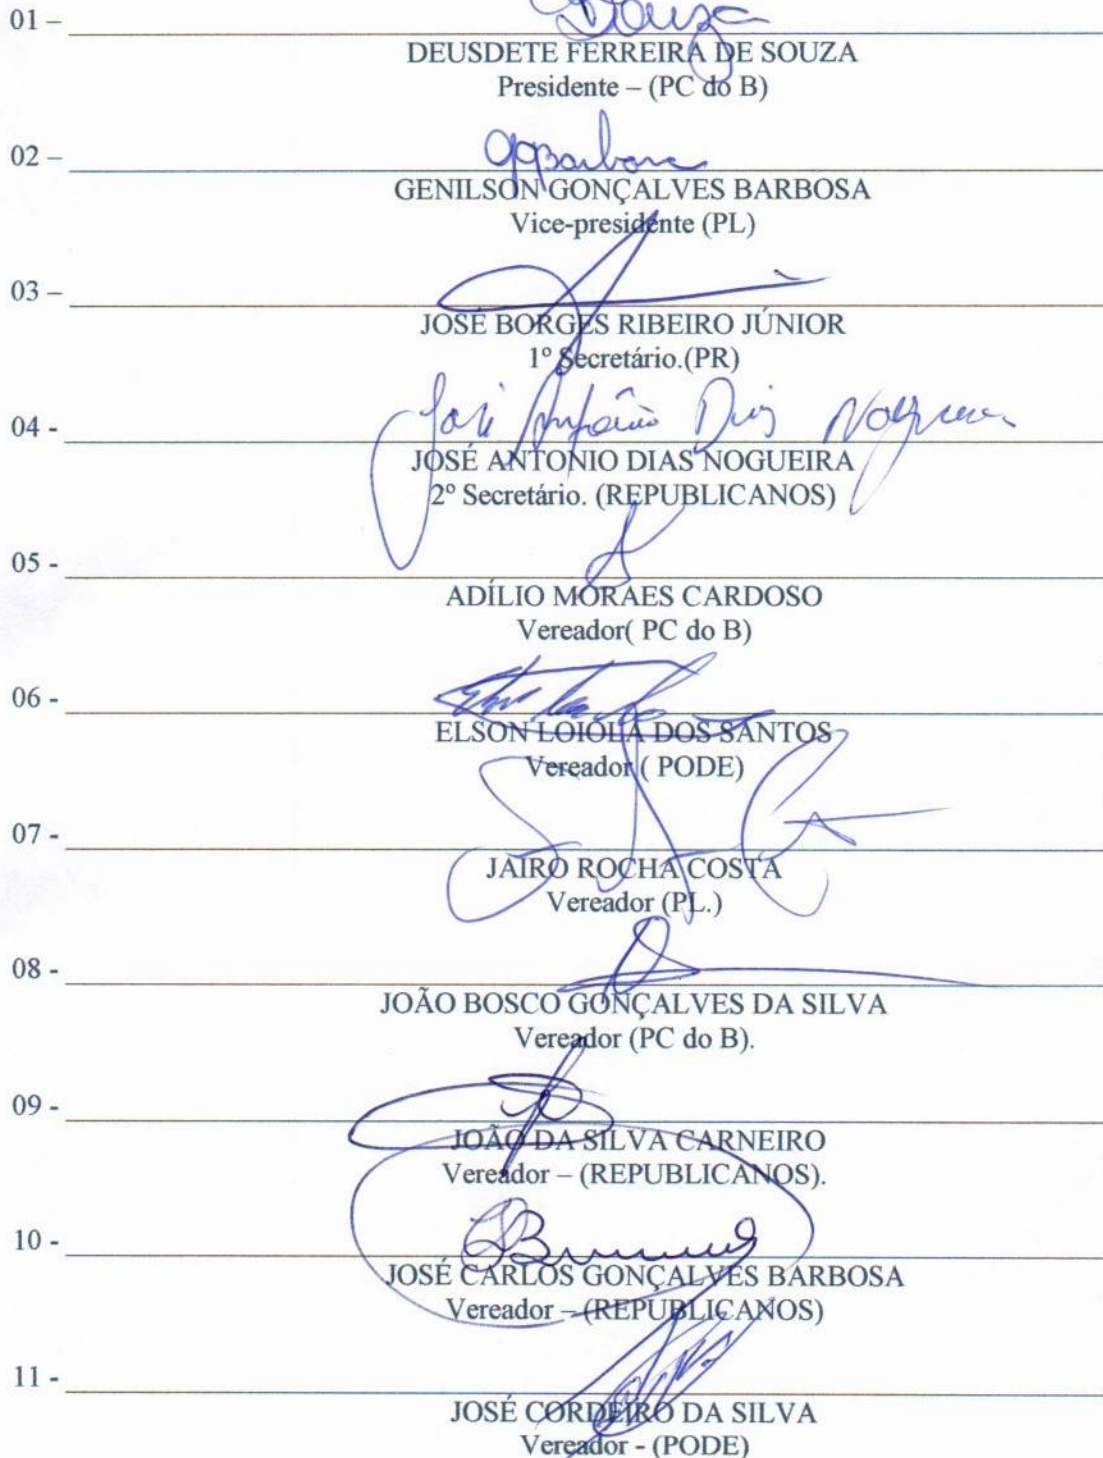 Souza
01 –
DEUSDETE FERREIRA DE SOUZA
Presidente – (PC do B)
02 –
GGBarbosa
GENILSON GONÇALVES BARBOSA
Vice-presidente (PL)
03 –
JOSÉ BORGES RIBEIRO JÚNIOR
1º Secretário.(PR)
José Antônio Dias Nogueira
04 -
JOSÉ ANTONIO DIAS NOGUEIRA
2º Secretário. (REPUBLICANOS)
05 -
ADÍLIO MORAES CARDOSO
Vereador( PC do B)
06 -
ELSON LOIOLA DOS SANTOS
Vereador ( PODE)
07 -
JAIRO ROCHA COSTA
Vereador (PL.)
08 -
JOÃO BOSCO GONÇALVES DA SILVA
Vereador (PC do B).
09 -
JOÃO DA SILVA CARNEIRO
Vereador – (REPUBLICANOS).
10 -
JOSÉ CARLOS GONÇALVES BARBOSA
Vereador – (REPUBLICANOS)
11 -
JOSÉ CORDEIRO DA SILVA
Vereador - (PODE)